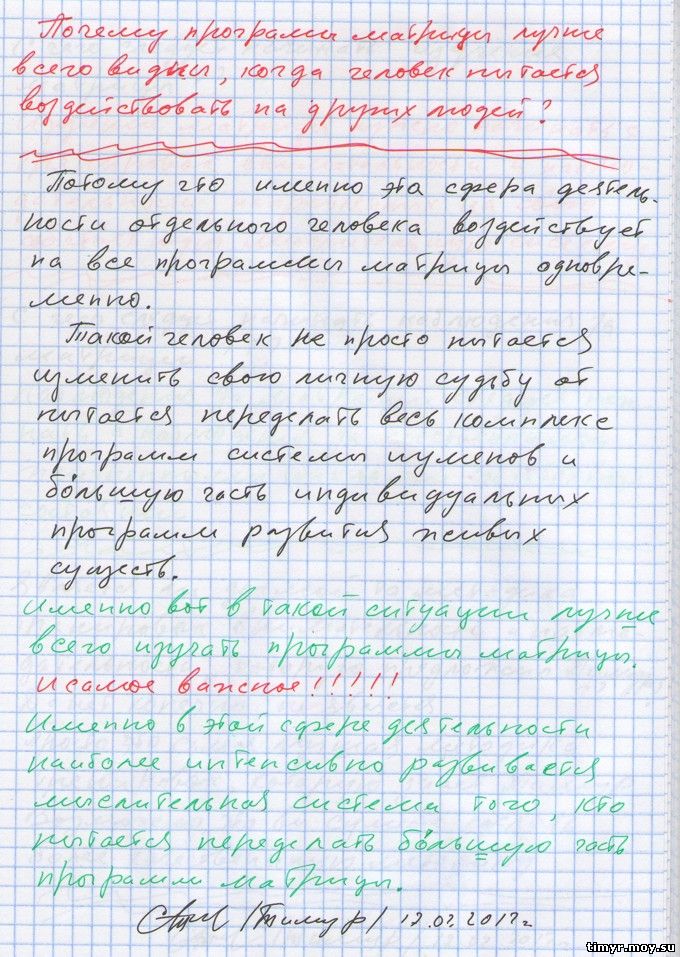 Почему программы матрицы лучше
всего видны, когда человек пытается
воздействовать на других людей?
Потому что именно эта сфера деятель-
ности отдельного человека воздействует
на все программы матрицы одновре-
менно.
Такой человек не просто пытается
изменить свою личную судьбу он
пытается переделать весь комплекс
программ системы нуменов и
бо́льшую часть индивидуальных
программ развития живых
существ.
Именно вот в такой ситуации лучше
всего изучать программы матрицы.
И самое важное!!!!!
Именно в этой сфере деятельности
наиболее интенсивно развивается
мыслительная система того, кто
пытается переделать бо́льшую часть
программ матрицы.
/Тимур/ 12.02.2012г
timyr.moy.su